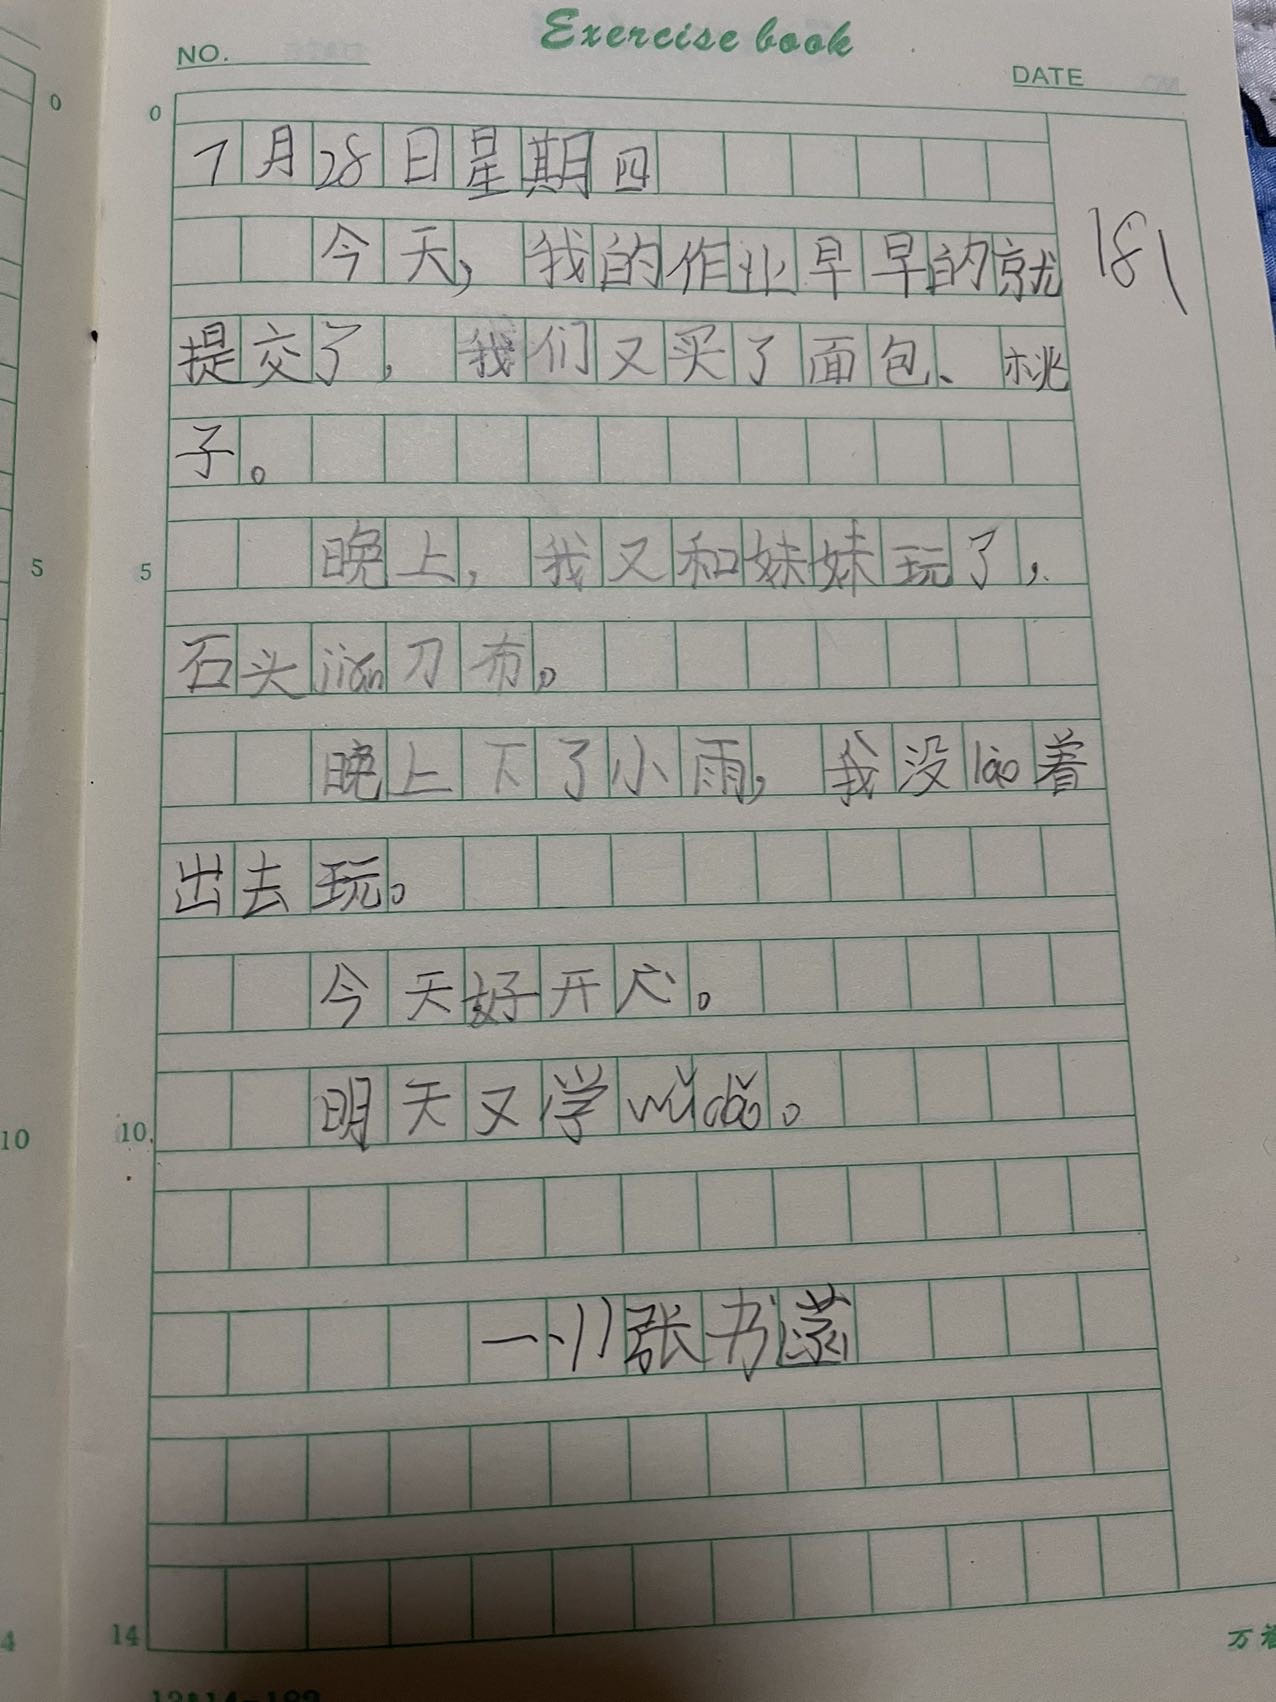 Exercise book
NO.
DATE
0
0
7月28日星期四
今天，我的作业早早的就
181
提交了，我们又买了面包、桃
子。
晚上，我又和妹妹玩了，
5
5
石头jiǎn刀布。
晚上下了小雨，我没lāo着
出去玩。
今天好开心。
明天又学wǔdǎo。
10
10
张书
14
4
万